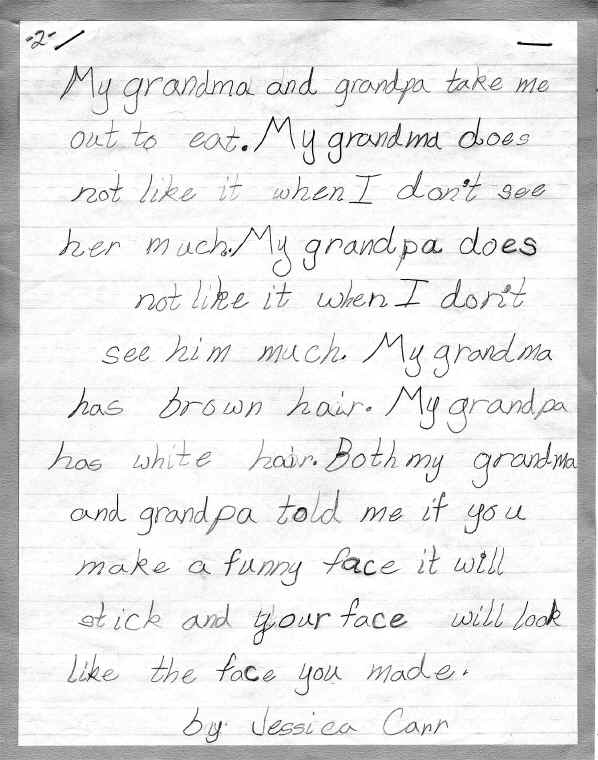 -2-
My grandma and grandpa take me
out to eat. My grandma does
not like it when I don't see
her much. My grandpa does
not like it when I don't
see him much. My grandma
has brown hair. My grandpa
has white hair. Both my grandma
and grandpa told me if you
make a funny face it will
stick and your face will look
like the face you made.
by Jessica Carr